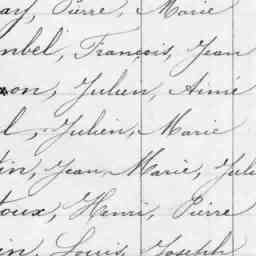 ay, Pierre, Marie
nbel, François, Jean
on, Julien, Aimé
l, Julien, Marie
tin, Jean, Marie, Juli
toux, Henri, Pierre
in, Louis, Joseph